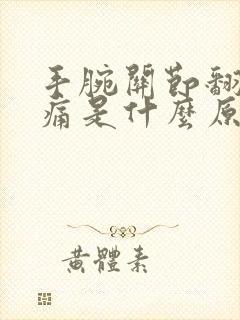 手腕關節翻
痛是什麼原
黃體素